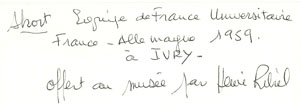 Short Equipe de France Universitaire
France - Allemagne 1959.
à IVRY -
offert au musée par Henri